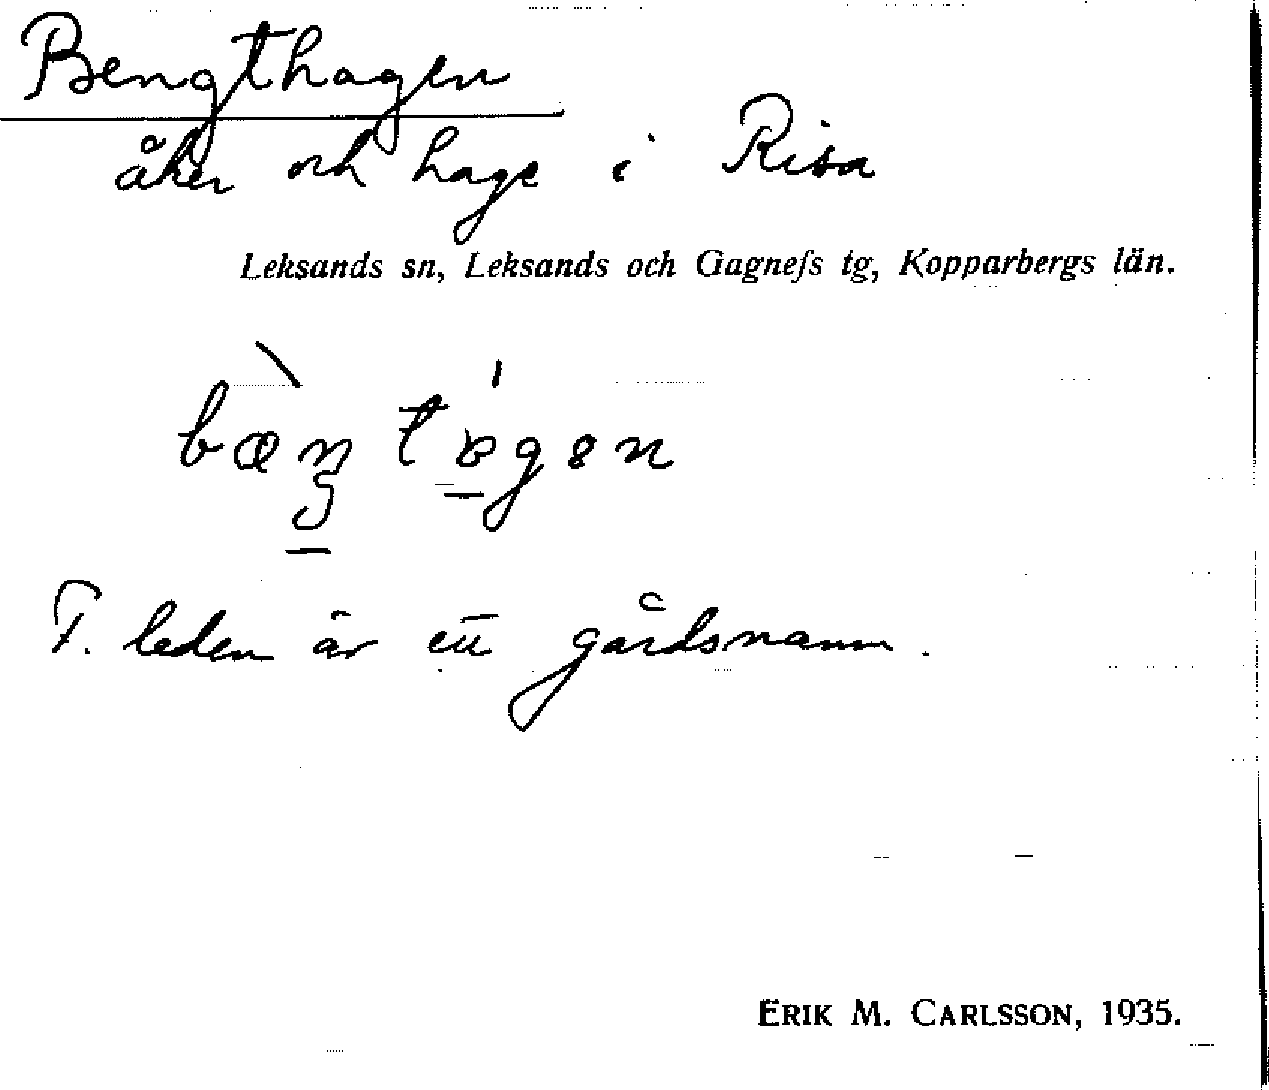 Bengthagen
åker och hage i Risa
Leksands sn, Leksands och Gagnefs tg, Kopparbergs län.
F. leden är ett gårdsnamn.
ERIK M. CARLSSON, 1935.